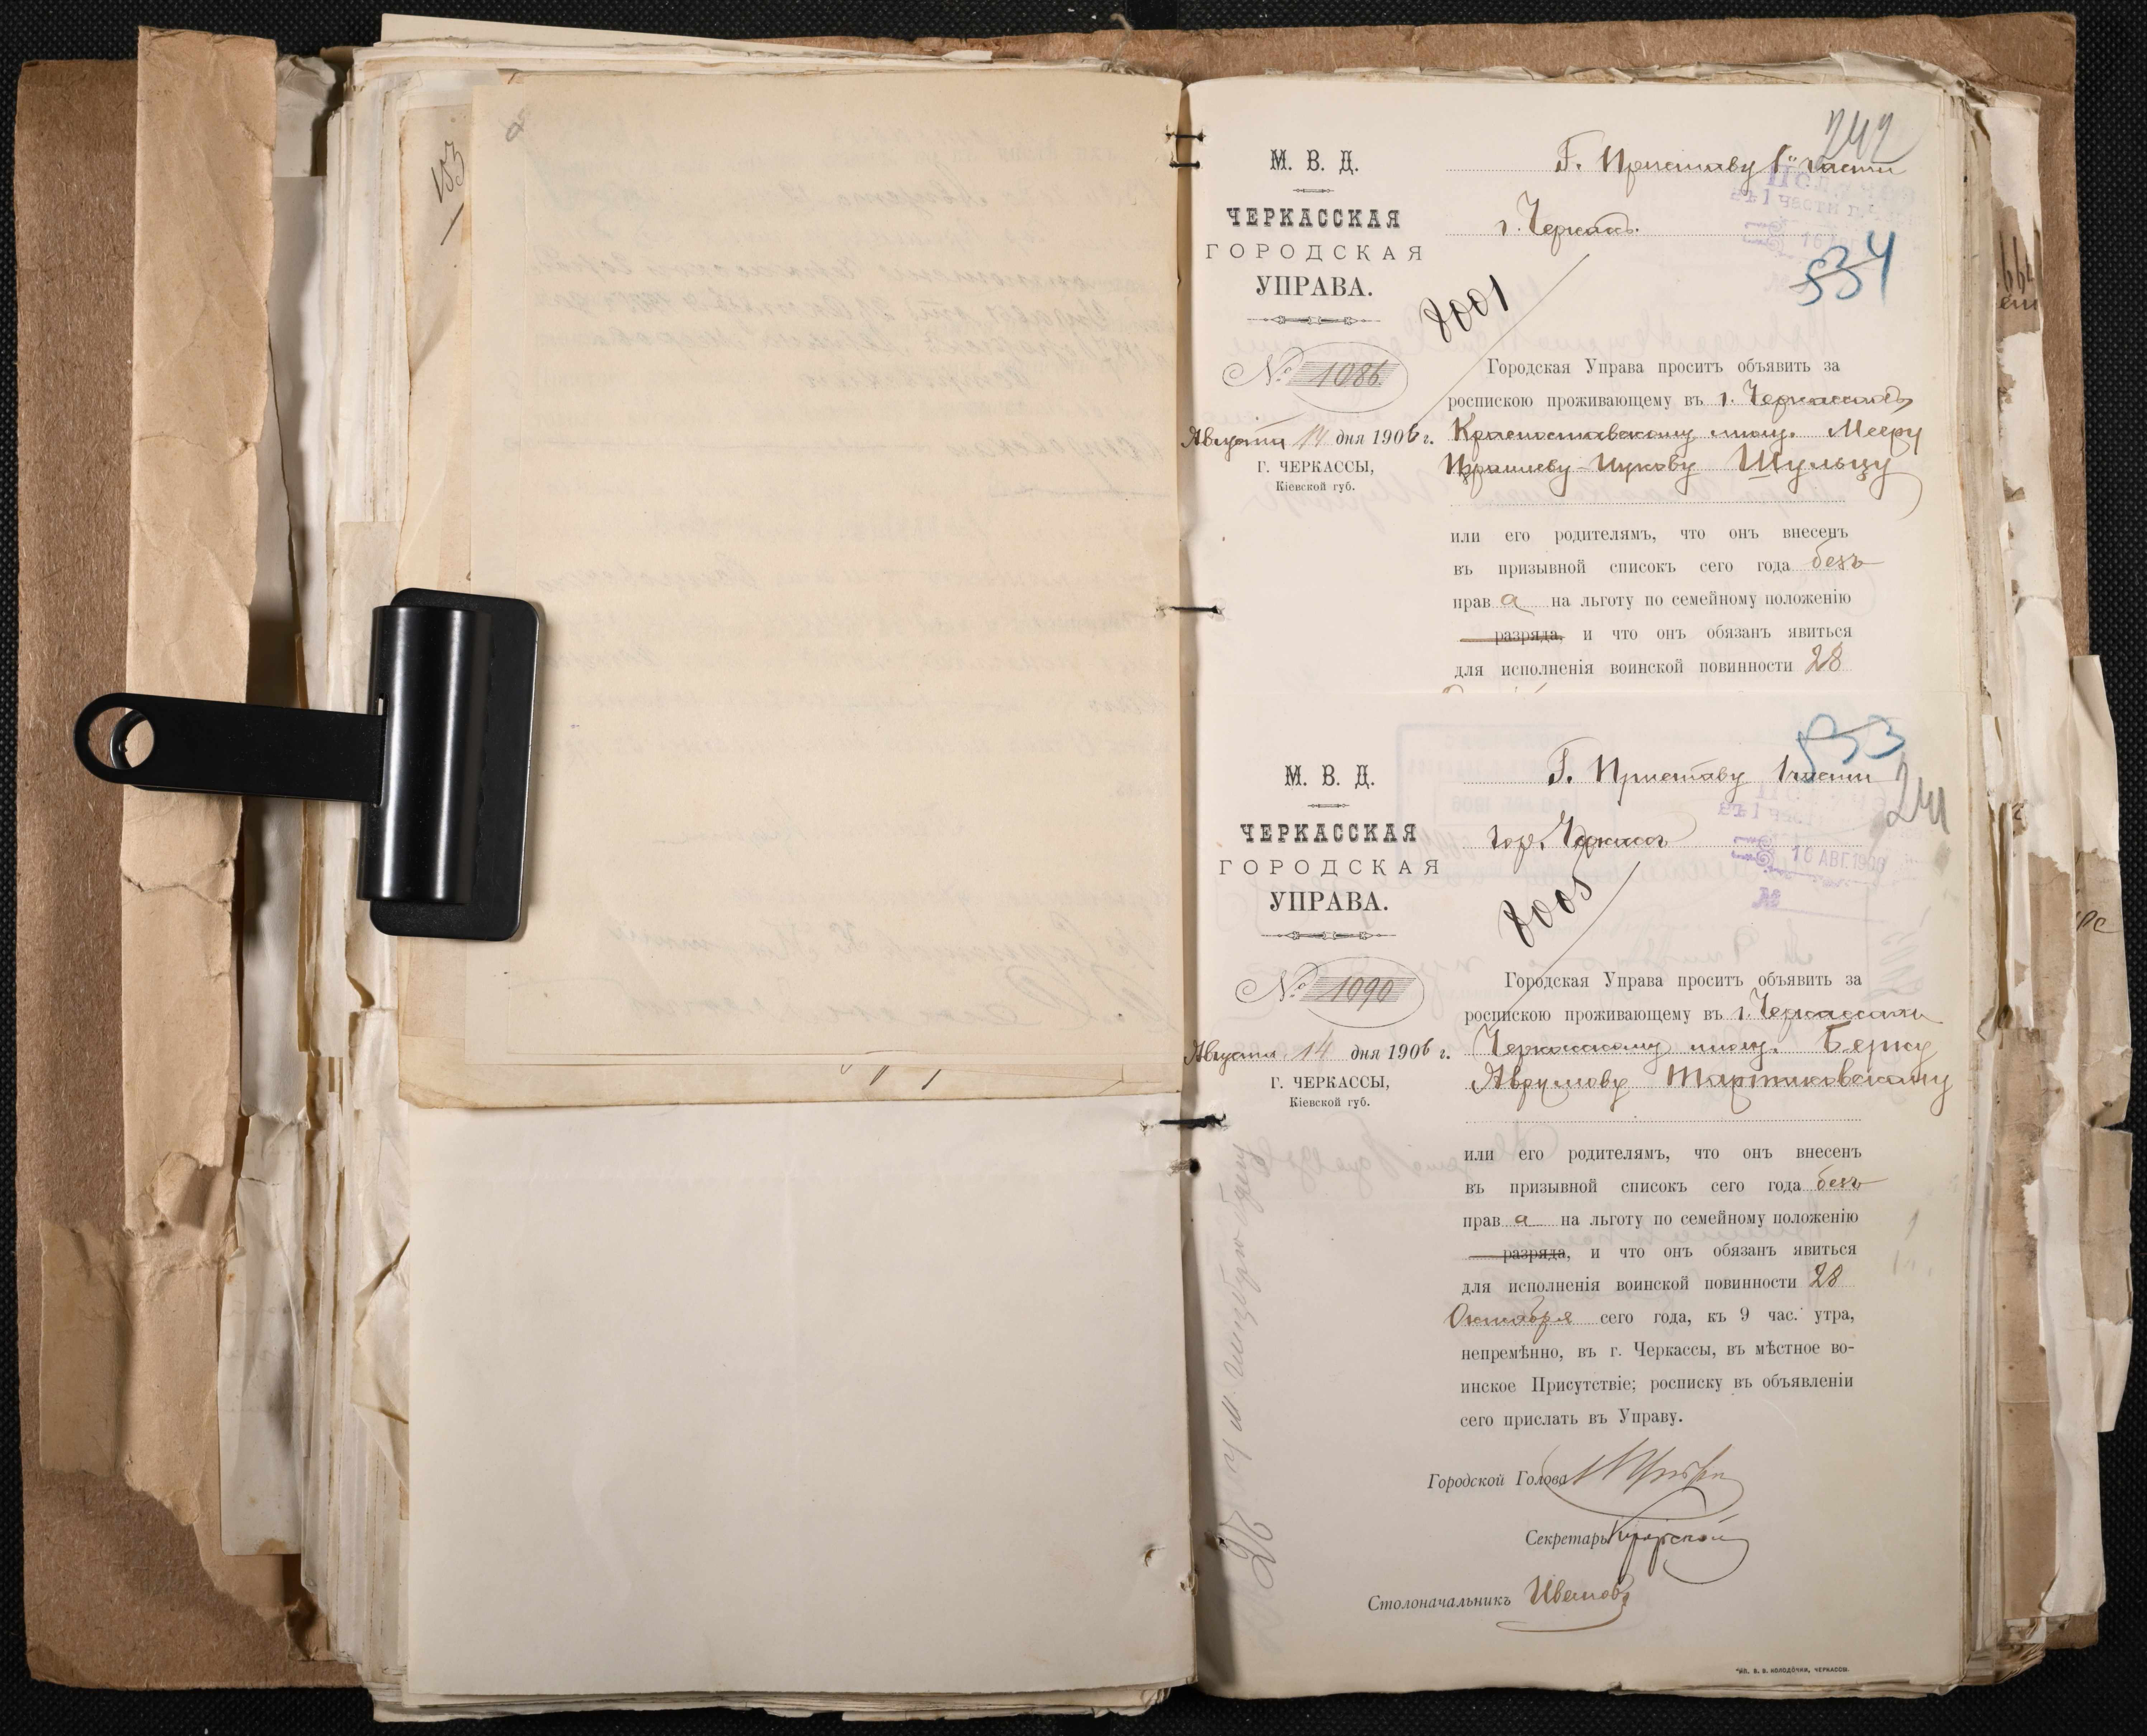 153
242
М. В. Д.
ЧЕРКАССКАЯ
ГОРОДСКАЯ
УПРАВА.
№ 1086
Августа 14 дня 1906 г.
Г. ЧЕРКАССЫ,
Кіевской губ.
Г. Приставу 1й части
г. Черкассъ.
534
8001
Городская Управа проситъ объявить за
роспискою проживающему въ г. Черкассахъ
Красноставскому мѣщ. Мееру
Шульцу
или его родителямъ, что онъ внесенъ
въ призывной списокъ сего года безъ
права на льготу по семейному положенію
разряда, и что онъ обязанъ явиться
для исполненія воинской повинности 28
533
241
М. В. Д.
ЧЕРКАССКАЯ
ГОРОДСКАЯ
УПРАВА.
№ 1090
Августа 14 дня 1906 г.
Г. ЧЕРКАССЫ,
Кіевской губ.
Г. Приставу 1 части
гор. Черкассъ
16 АВГ 1906
№
8005
Городская Управа проситъ объявить за
роспискою проживающему въ г. Черкассахъ
Черкасскому мѣщ. Берку
Аврумову Тартаковскому
или его родителямъ, что онъ внесенъ
въ призывной списокъ сего года безъ
права на льготу по семейному положенію
разряда, и что онъ обязанъ явиться
для исполненія воинской повинности 28
Октября сего года, къ 9 час. утра,
непремѣнно, въ г. Черкассы, въ мѣстное во-
инское Присутствіе; росписку въ объявленіи
сего прислать въ Управу.
Городской Голова
Секретарь
Столоначальникъ Ивановъ